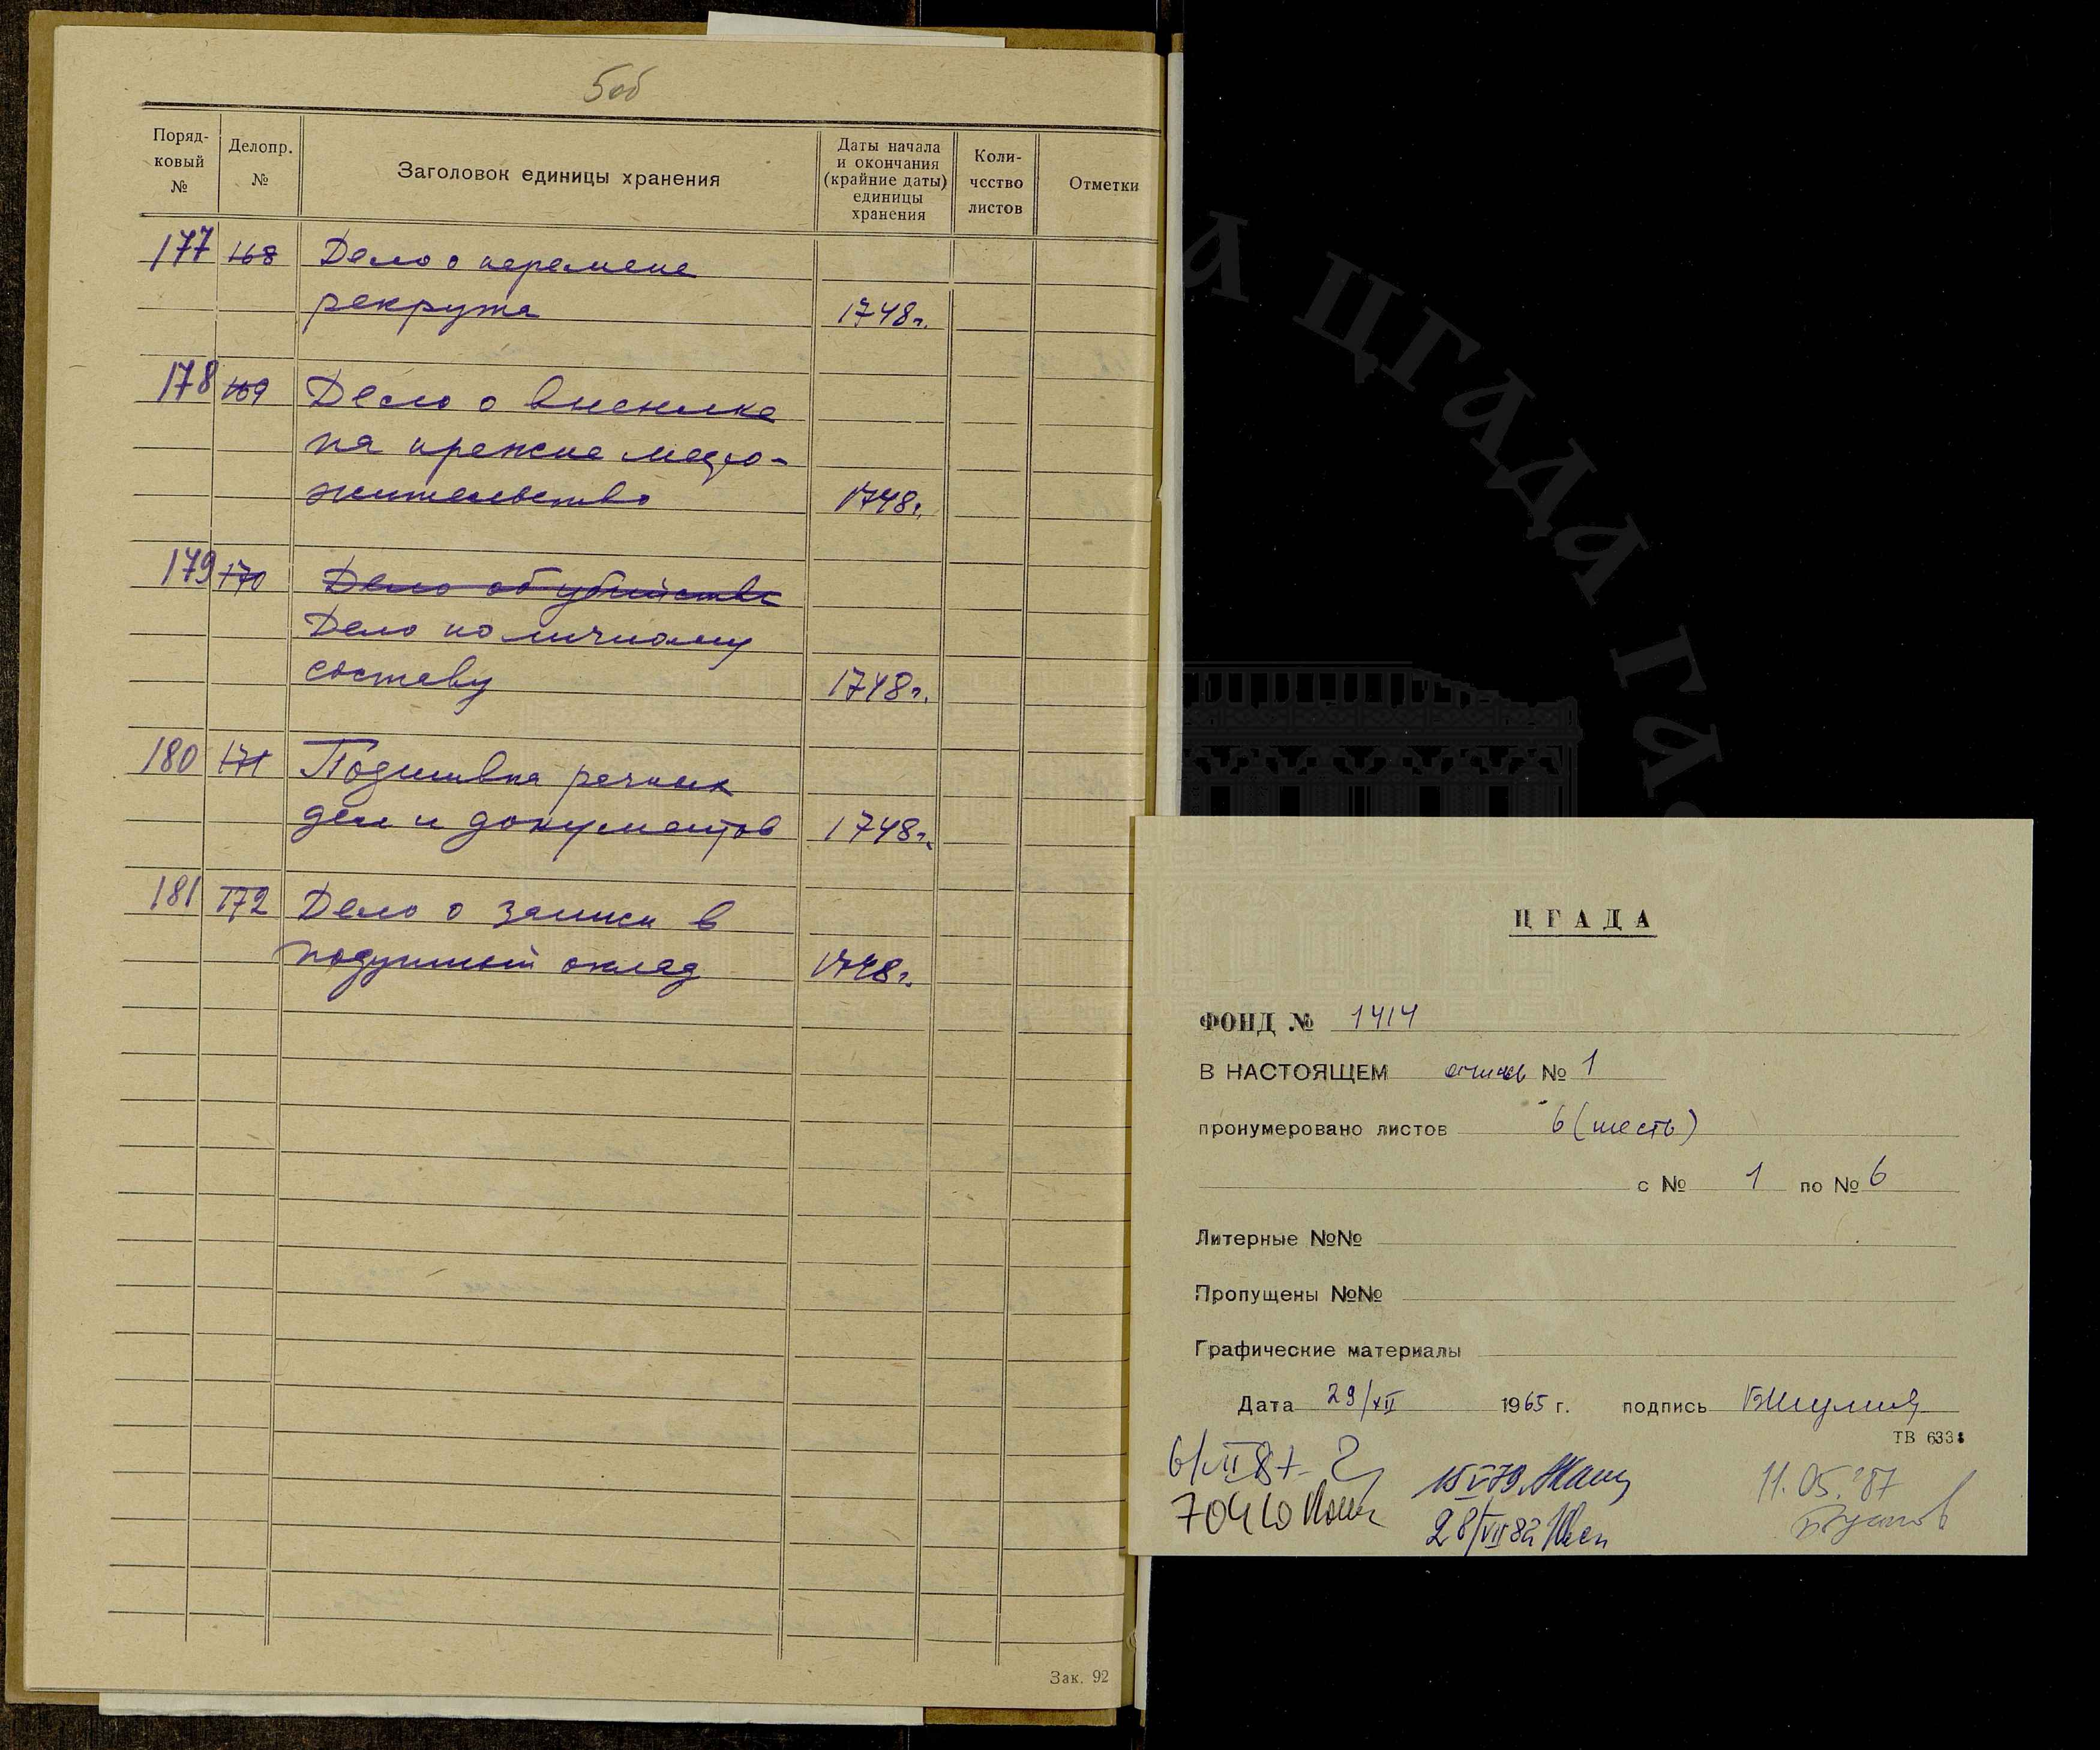 5об
Поряд-
ковый
№
Делопр.
№
Заголовок единицы хранения
Даты начала
и окончания
(крайние даты)
единицы
хранения
Коли-
чество
листов
Отметки
177 168 Дело о перемене
рекрута 1748г.
178 169 Дело о высылке
на прежне место-
жительство 1748г.
179 170 Дело об убийстве
Дело по личному
составу 1748г.
180 171 Подшивка разных
дел и документов 1748г.
181 172 Дело о записи в
подушный оклад 1748г.
Зак. 92
ЦГАДА
ФОНД № 1414
В НАСТОЯЩЕМ описи № 1
пронумеровано листов 6 (шесть)
с № 1 по № 6
Литерные №№
Пропущены №№
Графические материалы
Дата 29/XII 1965 г. подпись
ТВ 6338
15 V 79
11.05.87
28/VII 82
А ЦГАДА ГА